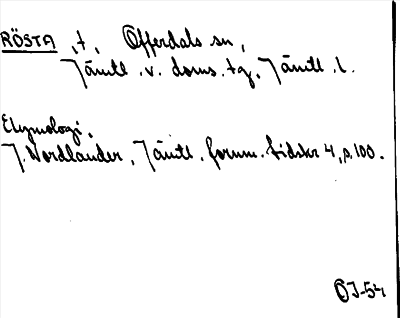 RÖSTA, t., Offerdals sn,
Jämtl. v. doms. tg, Jämtl. l.
Etymologi.
J. Nordlander, Jämtl. fornm. tidskr 4, p. 100.
ÖJ-54